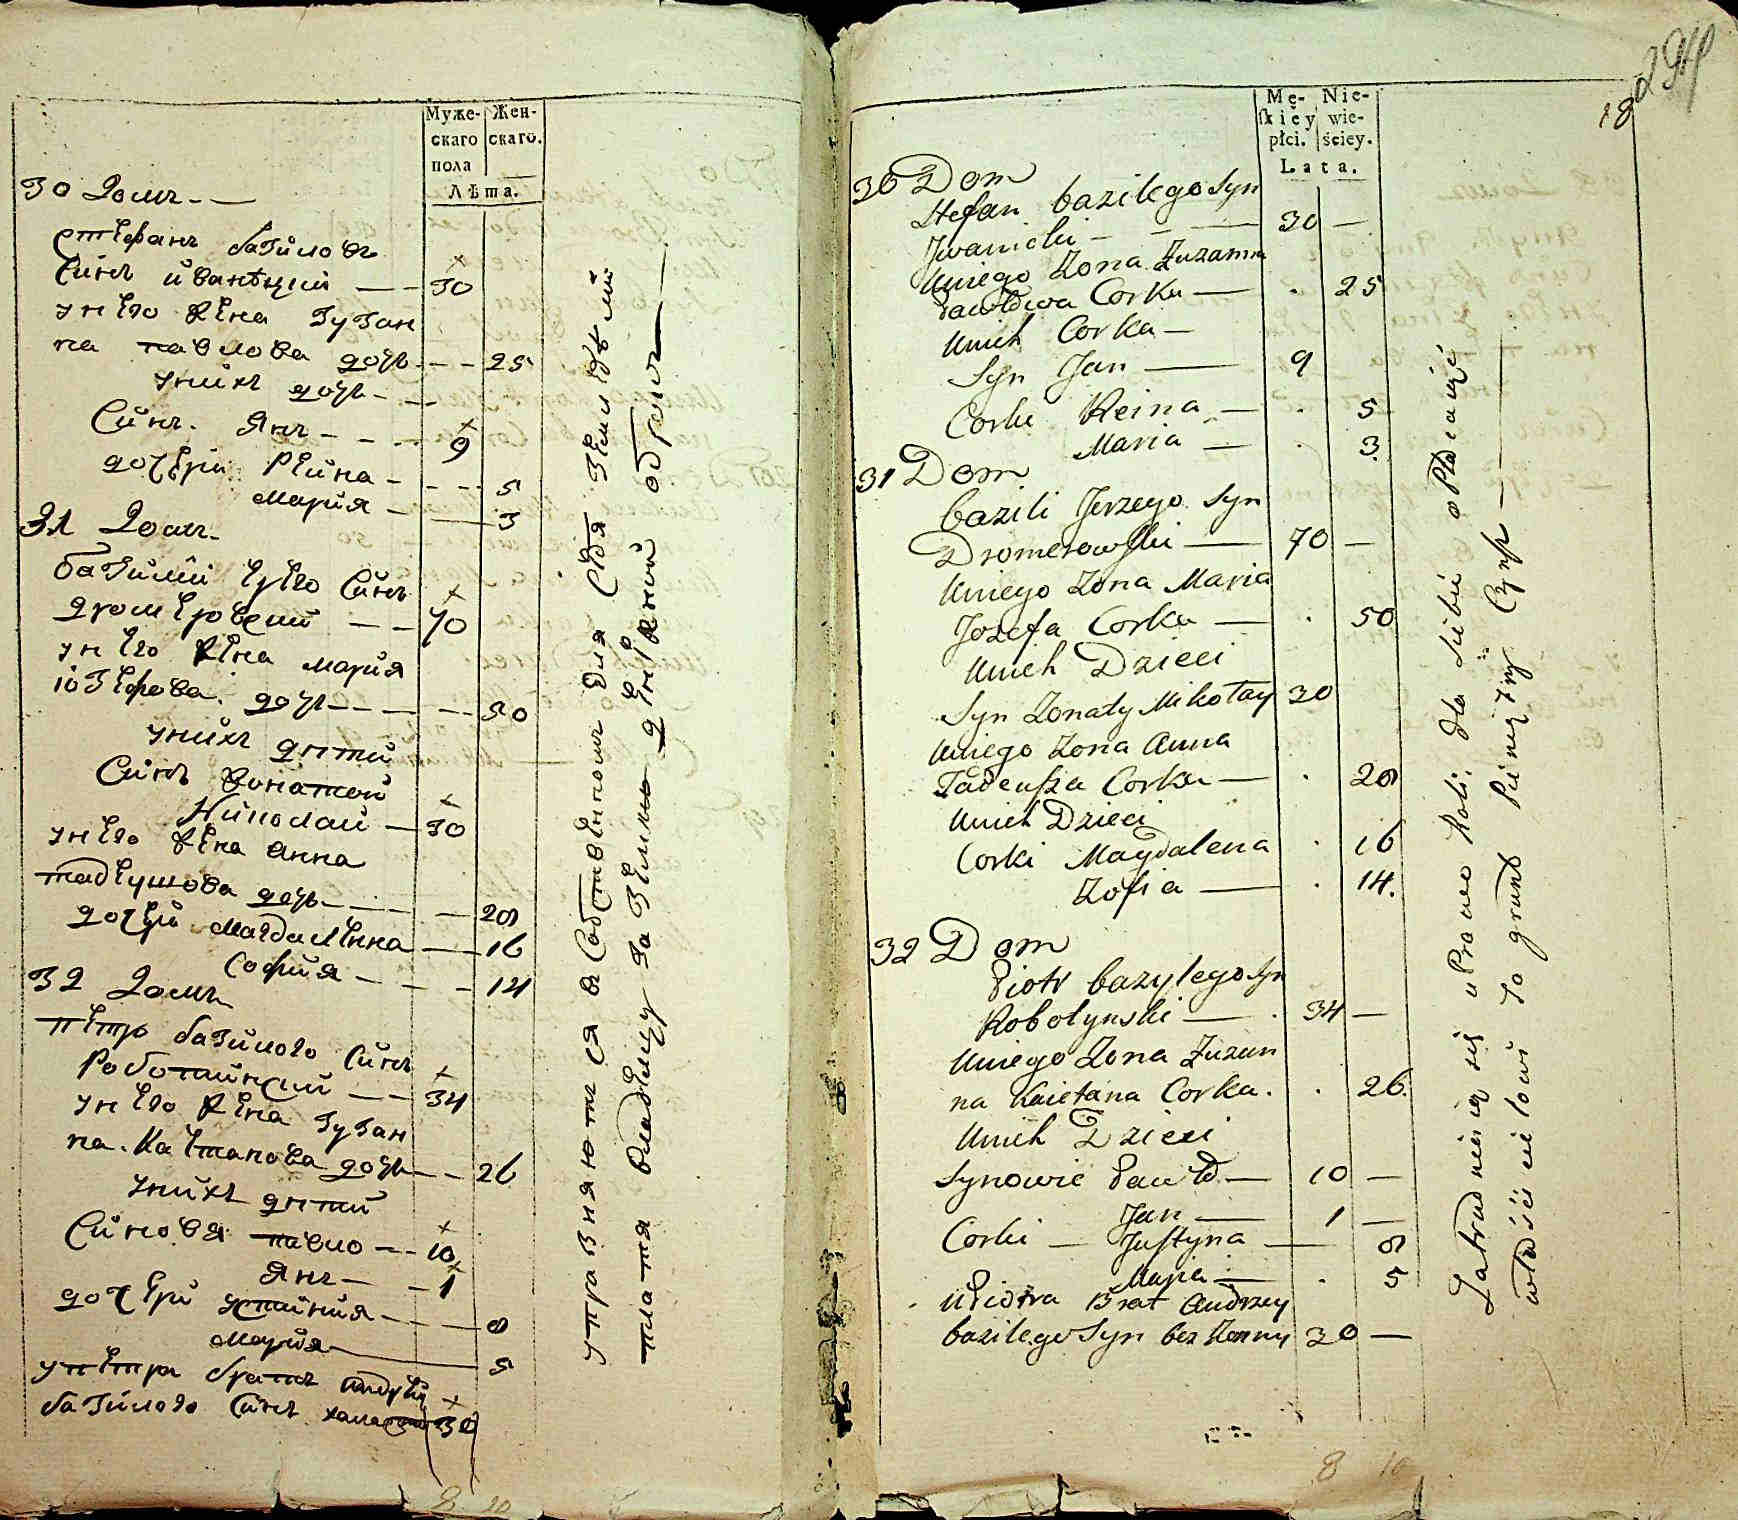 Муже-
скаго
пола
Жен-
скаго.
Лѣта.
30 Домъ
Стефанъ базиловъ
Синъ иваницкий 30
у него жена зузан
на павлова дочь 25
у нихъ дочь
Синъ Янъ 9
дочери Реина 5
Мария 3
31 Домъ
базилий Ержего Синъ
дромеровский 70
у него жена мария
іозефова дочь 50
у нихъ дѣти
Синъ жонатой
Николай 30
у него жена анна
тадеушова дочь 28
дочери Магдаленна 16
София 14
32 Домъ
петръ базилого Синъ
Роботинский 34
у него жена зузан
на Каетанова дочь 26
у нихъ дѣти
Синовя павло 10
Янъ 1
дочери устиния 8
Мария 5
у петра братъ андрей
базилого Синъ холостой 30
упразняются в собственномъ для себя земледѣлии
платя владѣлцу за землю денежной оброкъ
8 10
294
18
Mę-
skiey
płci.
Nie-
wie-
ściey.
Lata.
30 Dom
Stefan bazilego Syn
Jwanicki 30 —
Uniego Zona Zuzanna
Pawłowa Corka — 25
Unich Corka —
Syn Jan — 9
Corki Reina — 5
Maria — 3
31 Dom
bazili Jerzego Syn
Dromerowski — 70 —
Uniego Zona Maria
Jozefa Corka — 50
Unich Dzieci
Syn Zonaty Mikołay 30
Uniego Zona Anna
Tadeusza Corka — 28
Unich Dzieci
Corki Magdalena 16
Zofia — 14.
32 Dom
Piotr bazylego Syn
Robotynski — 34 —
Uniego Zona Zuzan
na Kaietana Corka. 26.
Unich Dzieci
Synowie Pawło — 10 —
Jan — 1 —
Corki — Justyna — 8
Maria — 5
U Piotra Brat Andrzey
bazilego Syn bez Zenny 30 —
Zatrudnieią się uPrawo Roli dla siebie opłacaiąc
właścicielowi To grunt Pieniężny Czynsz
8 10